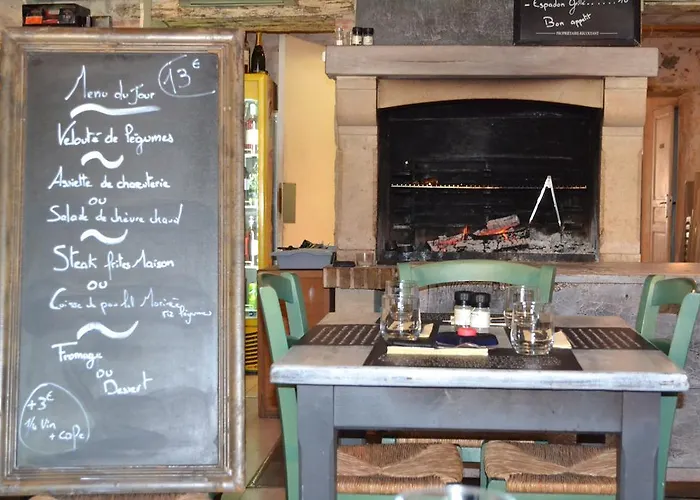 - Espadon Grillé
Bon appétit
Menu du Jour
13€
Velouté de légumes
Assiette de charcuterie
ou
Salade de chèvre chaud
Steak frites Maison
ou
Cuisse de poulet Marinée
riz légumes
Fromage
ou
Dessert
+3€
¼ Vin
+ café